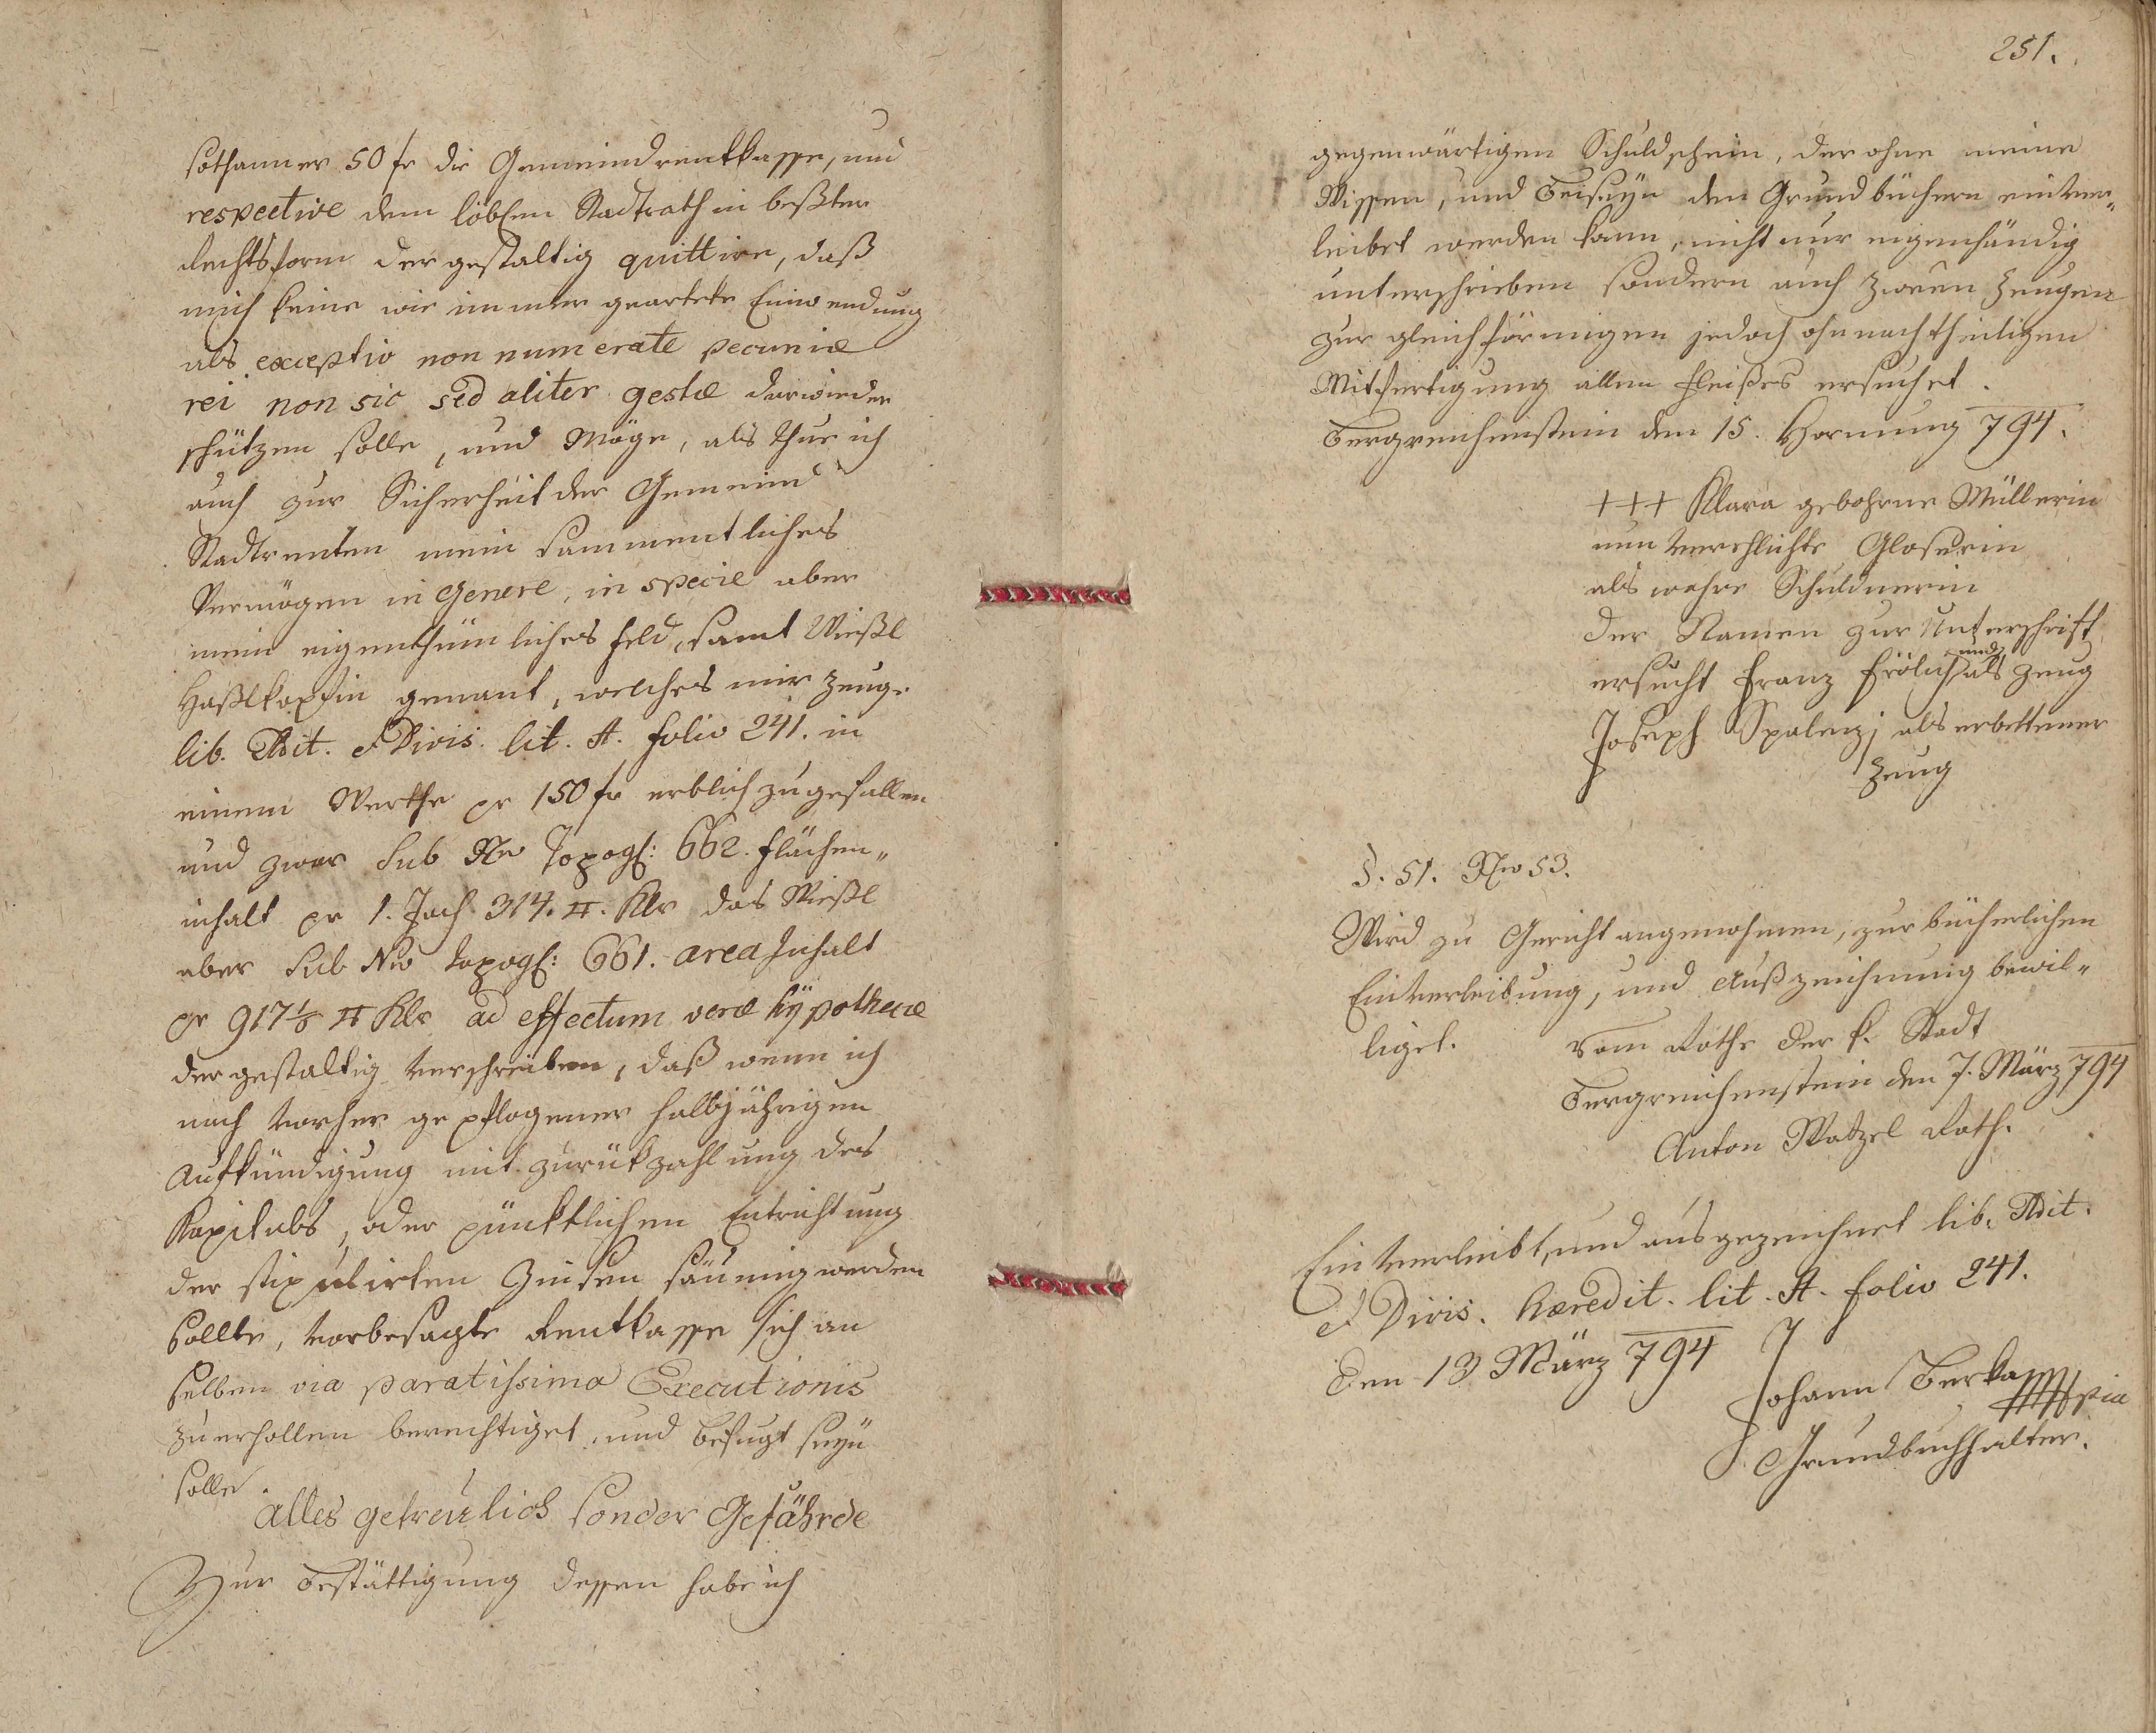 sothanner 50 fr die Gemeindrentkasse, und
respective dem löblen Stadtrath in beßter
Rechtsform der gestaltig quittire, daß
mich keine wie immer geartete Einwendung
als exceptio non numeratæ pecuniæ
rei non sic sed aliter gestæ darwieder
schützen solle, und möge, als thue ich
auch zur Sicherheit der Gemeind
Stadtrenten mein sammentliches
Vermögen in Genere, in specie aber
mein eigenthümliches Feld, samt Wießl
genant, welches mir zeuge
lib. Adit. et Divis. lit. A. folio 241. in
einem Werthe pr 150 fr erblich zugefallen
und zwar Sub Nro Topogh: 662. Flächen„
inhalt pr 1. Joch 314. □. Klr das Wießl
aber Sub Nro topogh: 661. area Inhalt
pr 917 1/8 □ Klr ad effectum veræ hÿpothecæ
der gestaltig verschreiben, daß wenn ich
nach vorher gepflogener halbjährigen
Aufkündigung mit zurükzahlung des
Kapitals, oder pünktlichen Entrichtung
der stipulirten Zinsen säumig werden
sollte, vorbesagte Rentkasse sich an
selben via paratissima Executionis
zu erhollen berechtiget, und befugt seÿn
solle.
Alles getreulich sonder Gefährde
Zur Bestättigung dessen habe ich
251.
gegenwärtigen Schuldschein, der ohne meine
Wissen, und Beiseÿn den Grundbüchern einver„
leibet werden kann, nicht nur eigenhändig
unterschrieben sondern auch zween Zeugen
zur gleichförmigen jedoch ohnnachtheiligen
Mitfertigung allen Fleißes ersuchet.
Bergreichenstein den 15. Hornung 794.
+++ Klara gebohrne Müllerin
nun verehlichte Gloserin
als wahre Schuldnerin
Der Namen zur Unterschrift
ersucht Franz Frölich und als Zeug
Joseph Spalenzj als erbettener
Zeug
§. 51. Nro 53.
Wird zu Gericht angenohmen, zur bücherlichen
Einverleibung, und Außzeichnung bewil„
liget. Vom Rathe der k. Stadt
Bergreichenstein den 7. März 794
Anton Watzel Rath.
Einverleibt, und ausgezeichnet lib. Adit.
et Divis. hæredit. lit. A. folio 241.
Den 13 März 794
Johann Berka mpia
Grundbuchhalter.